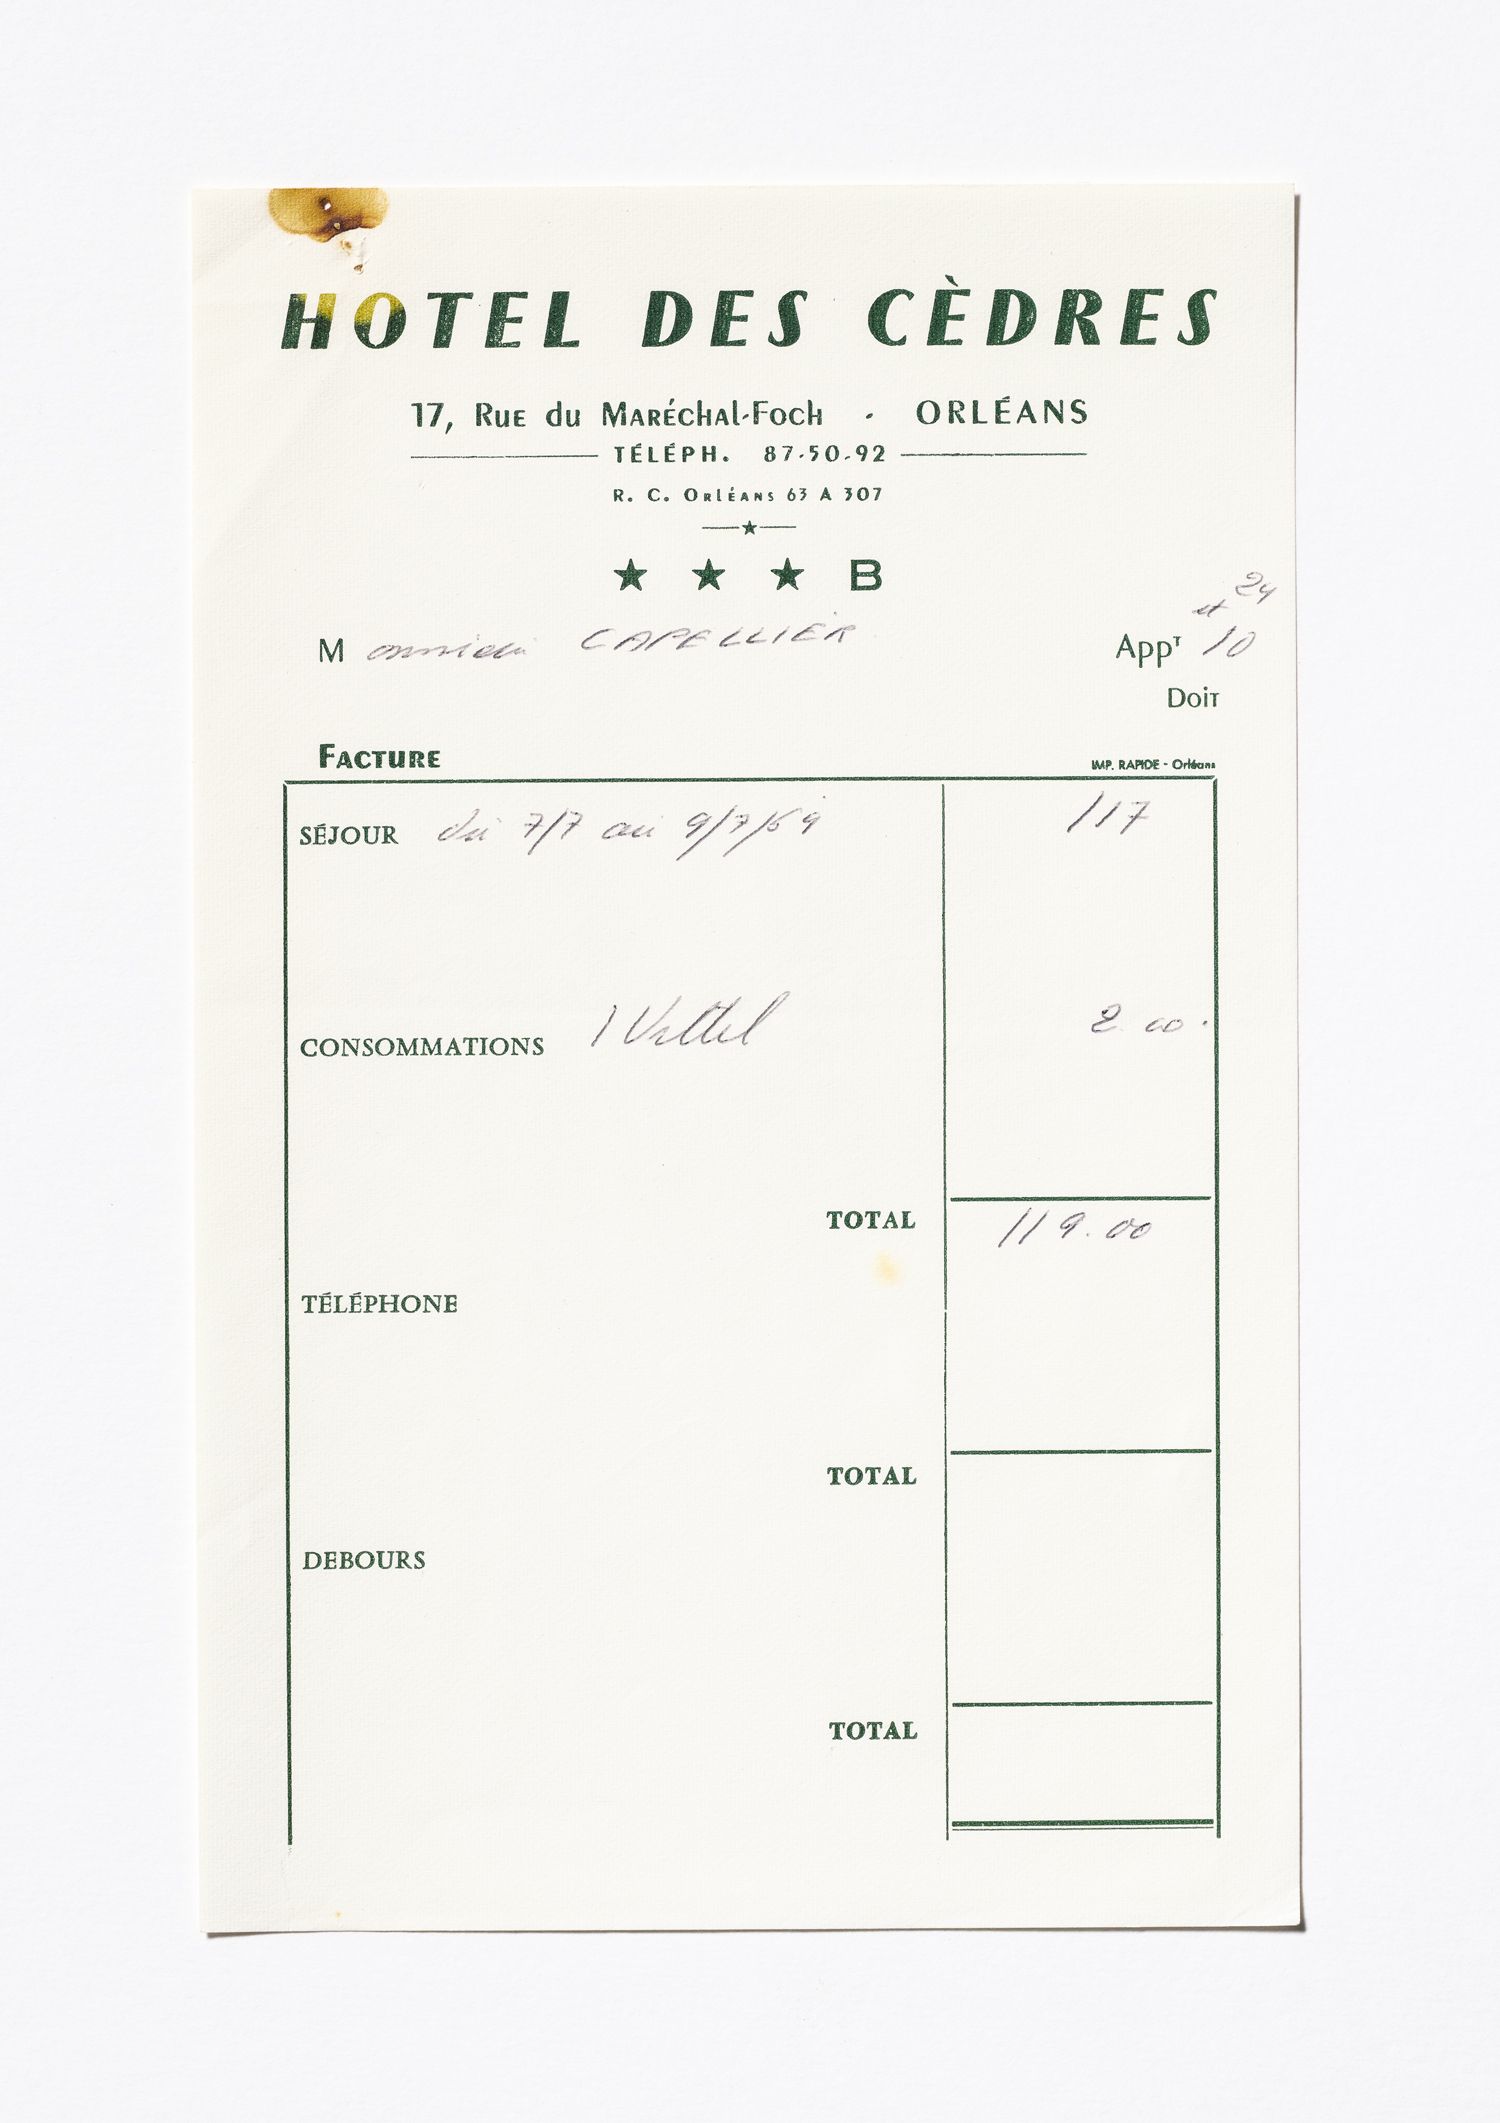 HOTEL DES CÈDRES
17, Rue du Maréchal-Foch - ORLÉANS
TÉLÉPH. 87-50-92
R. C. Orléans 63 A 307
★ ★ ★ B
Monsieur CAPELLIER Appt 10 et 24
Doit
Facture IMP. RAPIDE - Orléans
SÉJOUR du 7/7 au 9/7/69 117
CONSOMMATIONS 1 Vittel 2.00
TOTAL 119.00
TÉLÉPHONE
TOTAL
DEBOURS
TOTAL